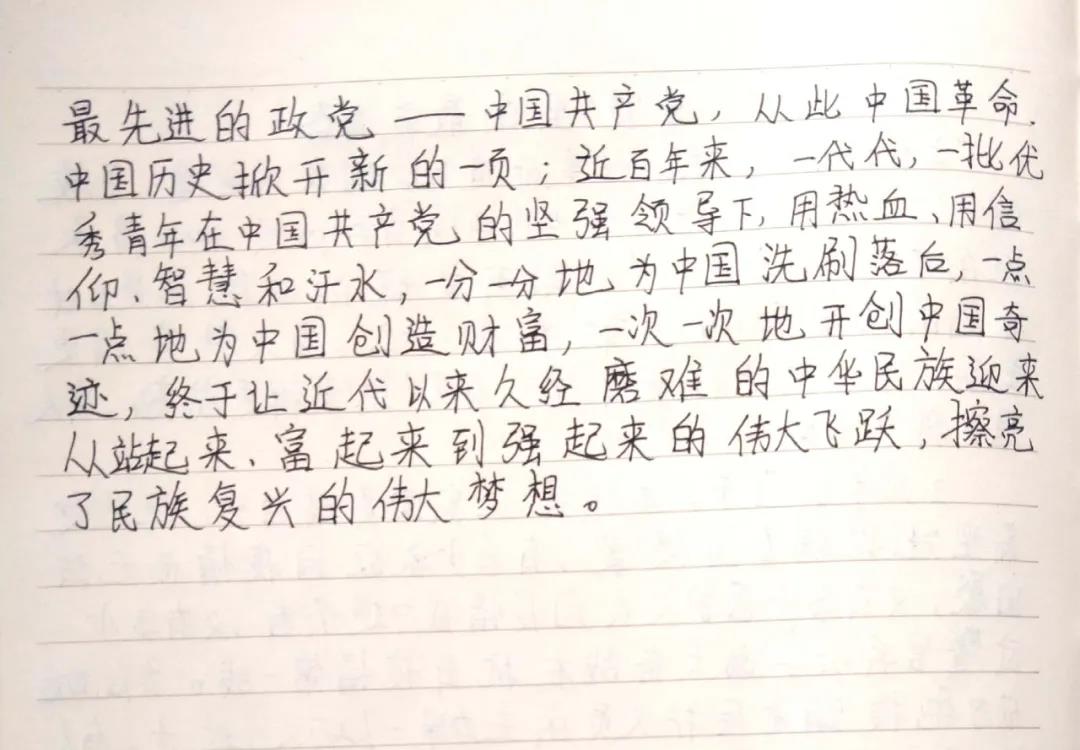 最先进的政党——中国共产党，从此中国革命、
中国历史掀开新的一页；近百年来，一代代，一批优
秀青年在中国共产党的坚强领导下，用热血、用信
仰、智慧和汗水，一分一分地为中国洗刷落后，一点
一点地为中国创造财富，一次一次地开创中国奇
迹，终于让近代以来久经磨难的中华民族迎来
从站起来、富起来到强起来的伟大飞跃，擦亮
了民族复兴的伟大梦想。